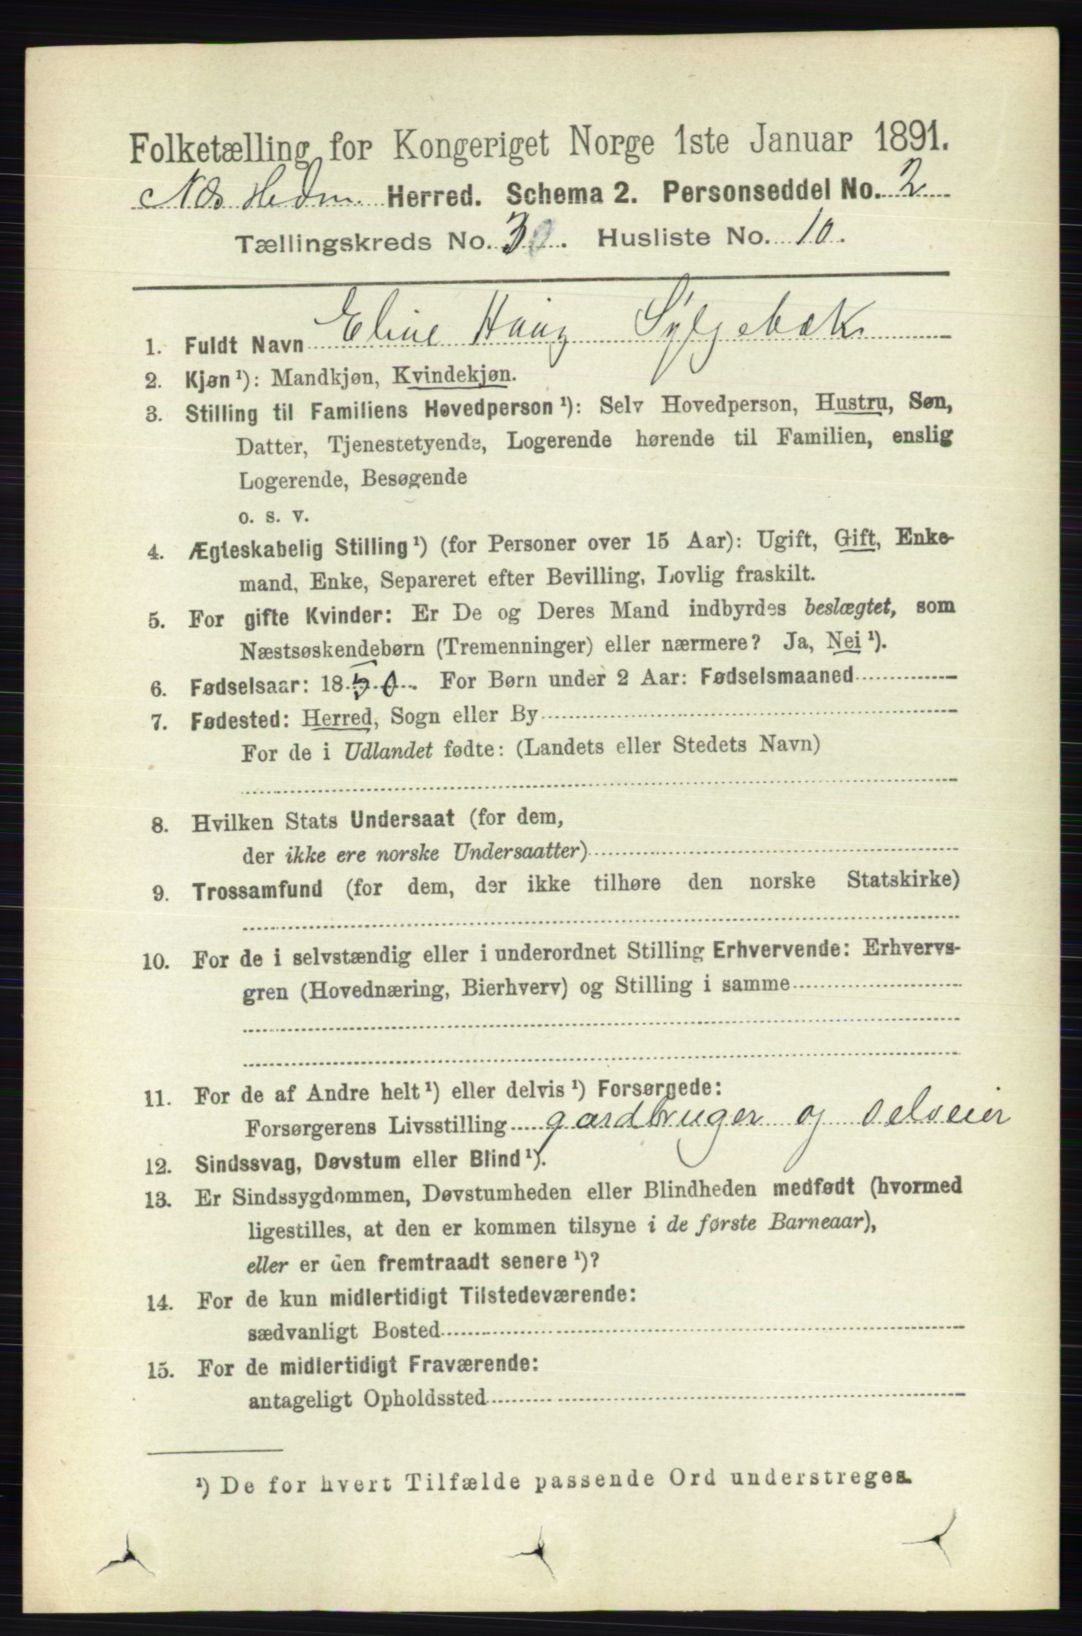 Folketælling for Kongeriget Norge 1ste Januar 1891.
Nes Hedm. Herred. Schema 2. Personseddel No. 2
Tællingskreds No. 30. Husliste No. 10.
1. Fuldt Navn Eline Haug Sylgebæk
2. Kjøn ¹): Mandkjøn, Kvindekjøn.
3. Stilling til Familiens Hovedperson ¹): Selv Hovedperson, Hustru, Søn,
Datter, Tjenestetyende, Logerende hørende til Familien, enslig
Logerende, Besøgende
o. s. v.
4. Ægteskabelig Stilling ¹) (for Personer over 15 Aar): Ugift, Gift, Enke-
mand, Enke, Separeret efter Bevilling, Lovlig fraskilt.
5. For gifte Kvinder: Er De og Deres Mand indbyrdes beslægtet, som
Næstsøskendebørn (Tremenninger) eller nærmere? Ja, Nei ¹).
6. Fødselsaar: 1850. For Børn under 2 Aar: Fødselsmaaned
7. Fødested: Herred, Sogn eller By
For de i Udlandet fødte: (Landets eller Stedets Navn)
8. Hvilken Stats Undersaat (for dem,
der ikke ere norske Undersaatter)
9. Trossamfund (for dem, der ikke tilhøre den norske Statskirke)
10. For de i selvstændig eller i underordnet Stilling Erhvervende: Erhvervs-
gren (Hovednæring, Bierhverv) og Stilling i samme
11. For de af Andre helt ¹) eller delvis ¹) Forsørgede:
Forsørgerens Livsstilling gardbruger og selveier
12. Sindssvag, Døvstum eller Blind ¹).
13. Er Sindssygdommen, Døvstumheden eller Blindheden medfødt (hvormed
ligestilles, at den er kommen tilsyne i de første Barneaar),
eller er den fremtraadt senere ¹)?
14. For de kun midlertidigt Tilstedeværende:
sædvanligt Bosted
15. For de midlertidigt Fraværende:
antageligt Opholdssted
¹) De for hvert Tilfælde passende Ord understreges.